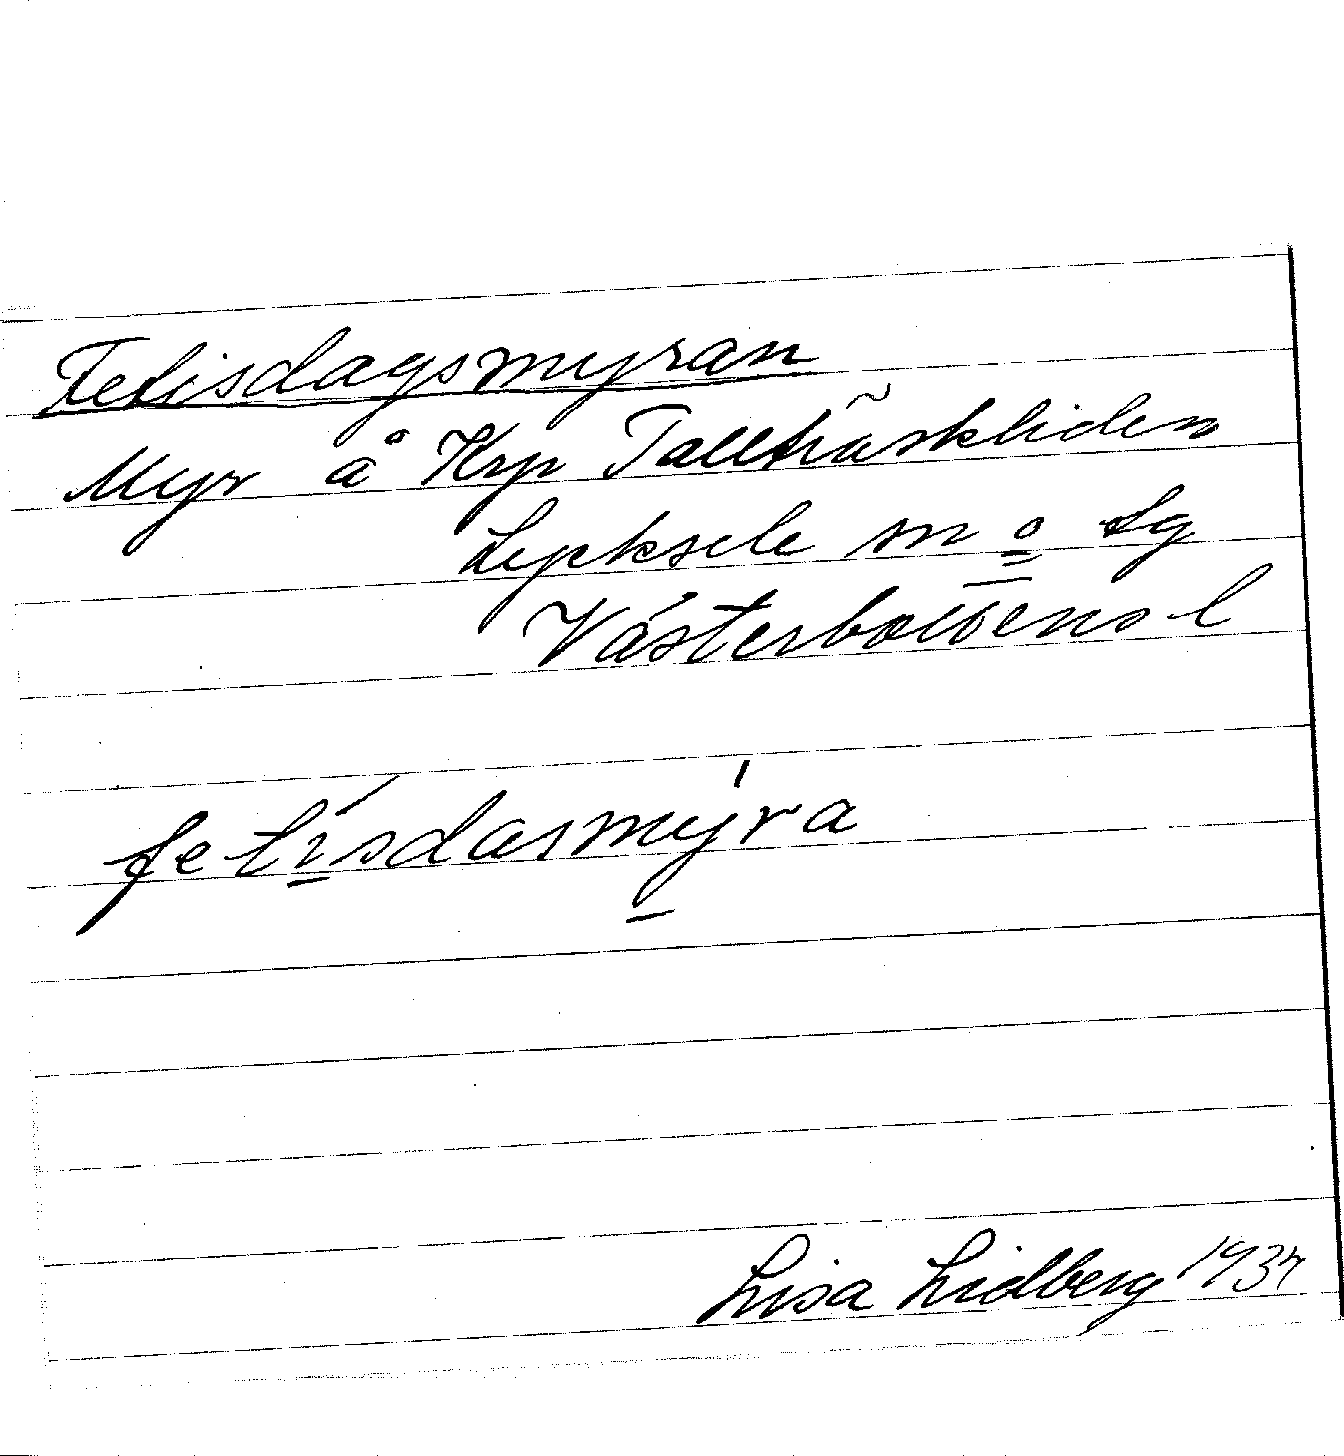 Fetisdagsmyran
Myr å Krp Tallträskliden
Lycksele sn o Lg
Västerbottens l
fetísdasmýra
Lisa Lidberg